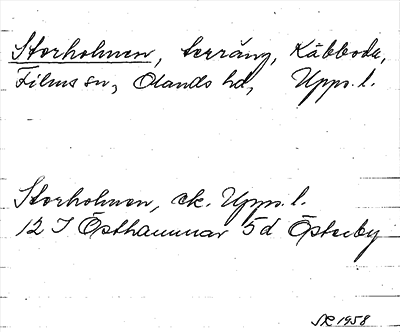 Storholmen, terräng, Kåbboda,
Films sn, Olands hd, Upps. l.
Storholmen, ek. Upps. l.
12 I Östhammar 5d Österby
SR 1958